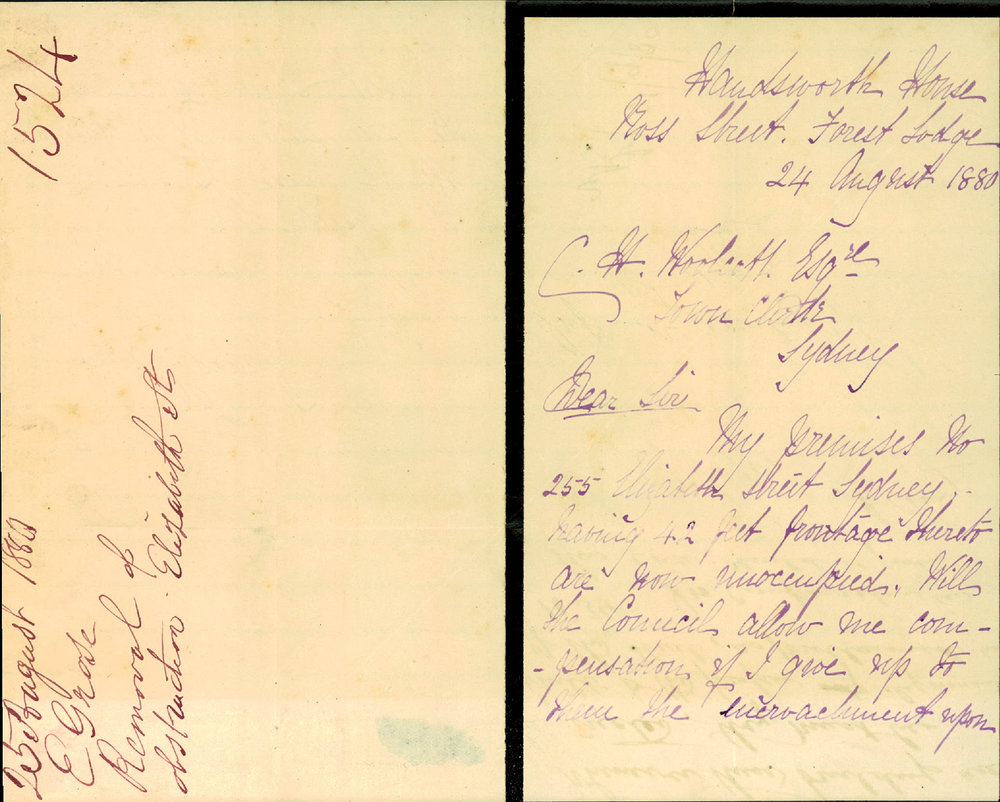 1524
25 August 1880
E Grose
Removal of
obstruction Elizabeth St
Handsworth House
Ross Street. Forest Lodge
24 August 1880
C. H. Woolcott. Esqre
Town Clerk
Sydney
Dear Sir
My premises No
255 Elizabeth Street Sydney.
having 42 feet frontage thereto
are now unoccupied. Will
the Council allow me com-
-pensation if I give up to
them the encroachment upon